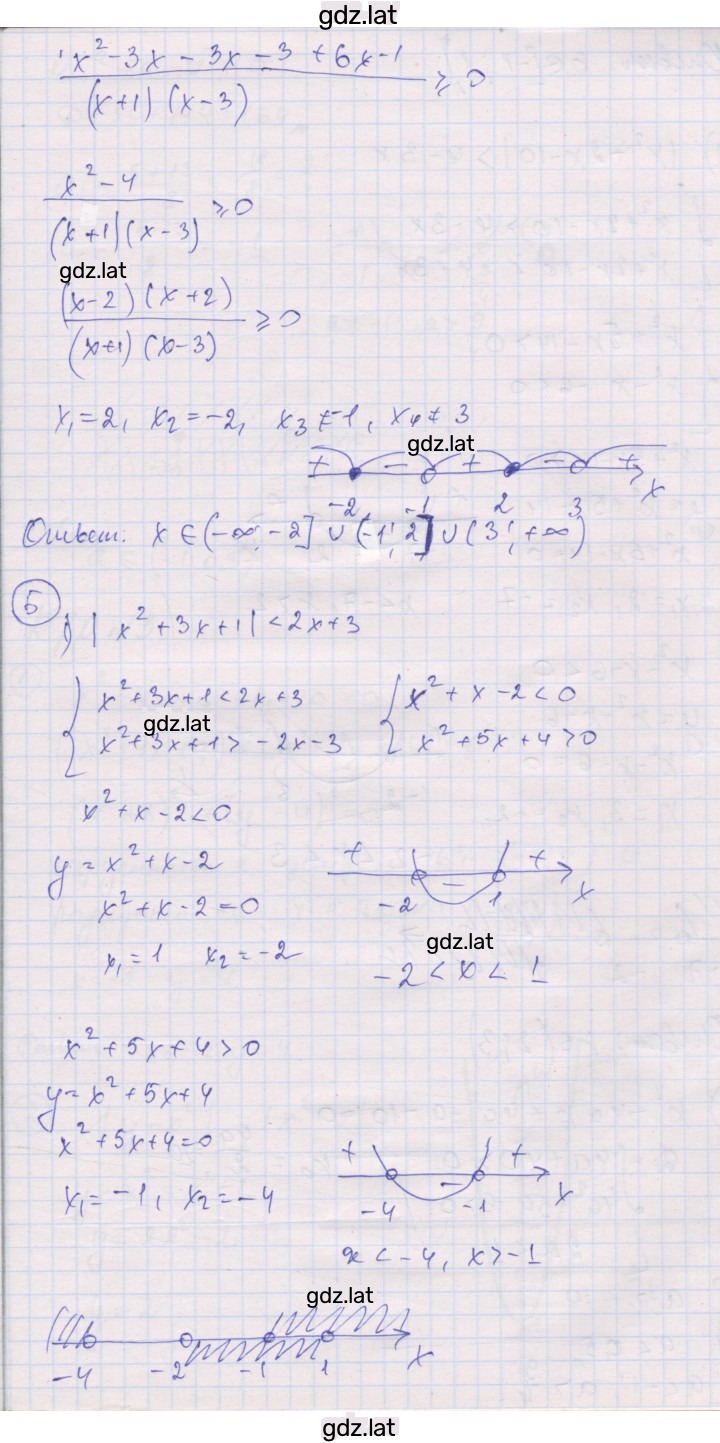 gdz.lat
x² - 3x - 3x - 3 + 6x - 1 / (x+1)(x-3) ≥ 0
x² - 4 / (x+1)(x-3) ≥ 0
gdz.lat
(x-2)(x+2) / (x+1)(x-3) ≥ 0
x₁ = 2, x₂ = -2, x₃ ≠ -1, x₄ ≠ 3
gdz.lat
+ - + - + x
-2 -1 2 3
Ответ: x ∈ (-∞; -2] ∪ (-1; 2] ∪ (3; +∞)
5
1) |x² + 3x + 1| < 2x + 3
{ x² + 3x + 1 < 2x + 3 { x² + x - 2 < 0
gdz.lat
x² + 3x + 1 > -2x - 3 x² + 5x + 4 > 0
x² + x - 2 < 0
y = x² + x - 2
+ - + x
x² + x - 2 = 0
-2 1
x₁ = 1 x₂ = -2
gdz.lat
-2 < x < 1
x² + 5x + 4 > 0
y = x² + 5x + 4
x² + 5x + 4 = 0
+ - + x
x₁ = -1, x₂ = -4
-4 -1
x < -4, x > -1
gdz.lat
-4 -2 -1 1 x
gdz.lat